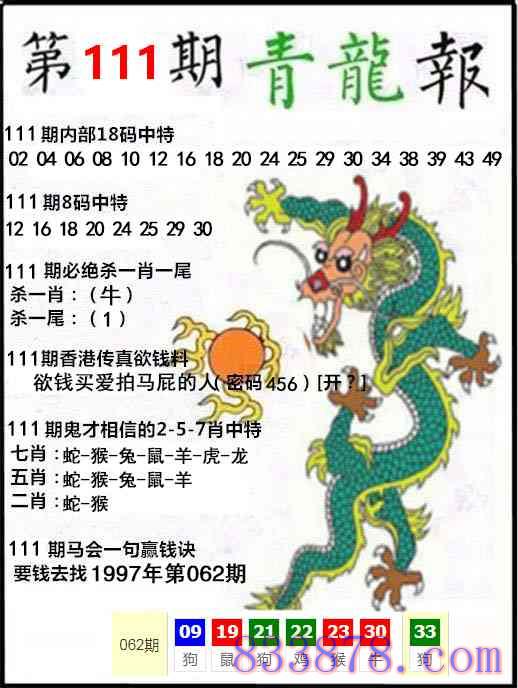 第111期青龍報
111期内部18码中特
02 04 06 08 10 12 16 18 20 24 25 29 30 34 38 39 43 49
111期8码中特
12 16 18 20 24 25 29 30
111期必绝杀一肖一尾
杀一肖：（牛）
杀一尾：（1）
111期香港传真欲钱料
欲钱买爱拍马屁的人（密码456）[开？]
111期鬼才相信的2-5-7肖中特
七肖：蛇-猴-兔-鼠-羊-虎-龙
五肖：蛇-猴-兔-鼠-羊
二肖：蛇-猴
111期马会一句赢钱诀
要钱去找1997年第062期
062期 09 19 21 22 23 30 33
狗 鼠 狗 鸡 猴 牛 狗
833878.com